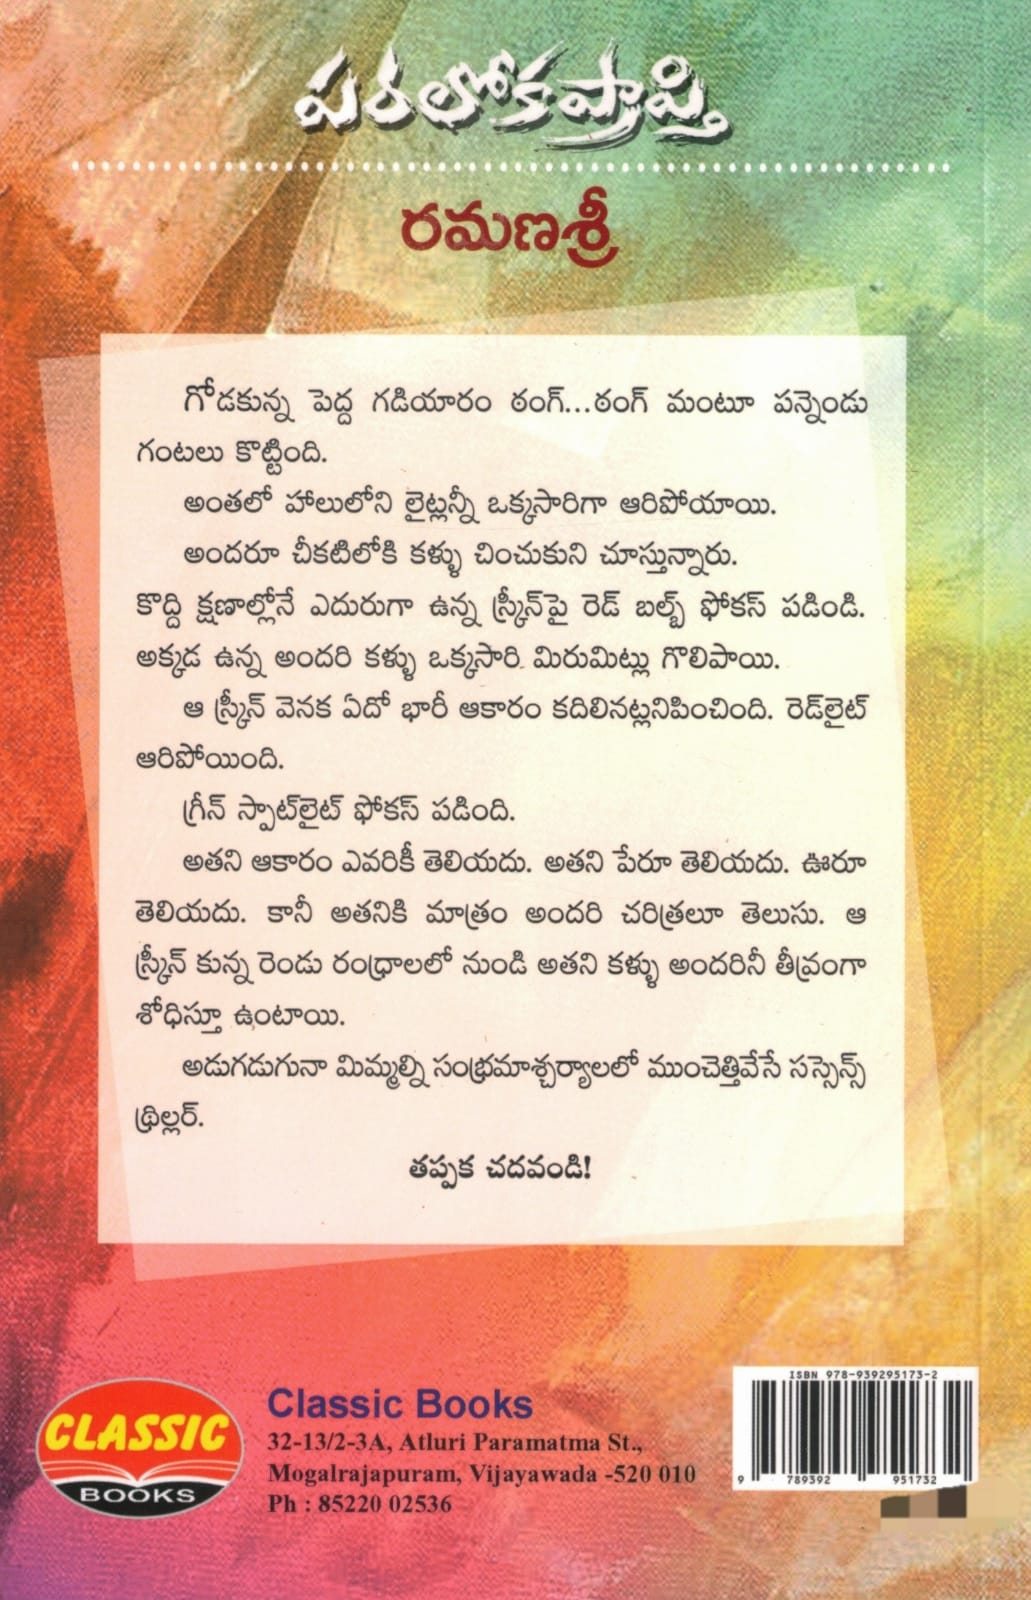 పరలోకప్రాప్తి
రమణశ్రీ
గోడకున్న పెద్ద గడియారం ఠంగ్...ఠంగ్ మంటూ పన్నెండు
గంటలు కొట్టింది.
అంతలో హాలులోని లైట్లన్నీ ఒక్కసారిగా ఆరిపోయాయి.
అందరూ చీకటిలోకి కళ్ళు చించుకుని చూస్తున్నారు.
కొద్ది క్షణాల్లోనే ఎదురుగా ఉన్న స్క్రీన్‌పై రెడ్ బల్బ్ ఫోకస్ పడిండి.
అక్కడ ఉన్న అందరి కళ్ళు ఒక్కసారి మిరుమిట్లు గొలిపాయి.
ఆ స్క్రీన్ వెనక ఏదో భారీ ఆకారం కదిలినట్లనిపించింది. రెడ్‌లైట్
ఆరిపోయింది.
గ్రీన్ స్పాట్‌లైట్ ఫోకస్ పడింది.
అతని ఆకారం ఎవరికీ తెలియదు. అతని పేరూ తెలియదు. ఊరూ
తెలియదు. కానీ అతనికి మాత్రం అందరి చరిత్రలూ తెలుసు. ఆ
స్క్రీన్ కున్న రెండు రంధ్రాలలో నుండి అతని కళ్ళు అందరినీ తీవ్రంగా
శోధిస్తూ ఉంటాయి.
అడుగడుగునా మిమ్మల్ని సంభ్రమాశ్చర్యాలలో ముంచెత్తివేసే సస్పెన్స్
థ్రిల్లర్.
తప్పక చదవండి!
CLASSIC
BOOKS
Classic Books
32-13/2-3A, Atluri Paramatma St.,
Mogalrajapuram, Vijayawada -520 010
Ph : 85220 02536
ISBN 978-939295173-2
9 789392 951732